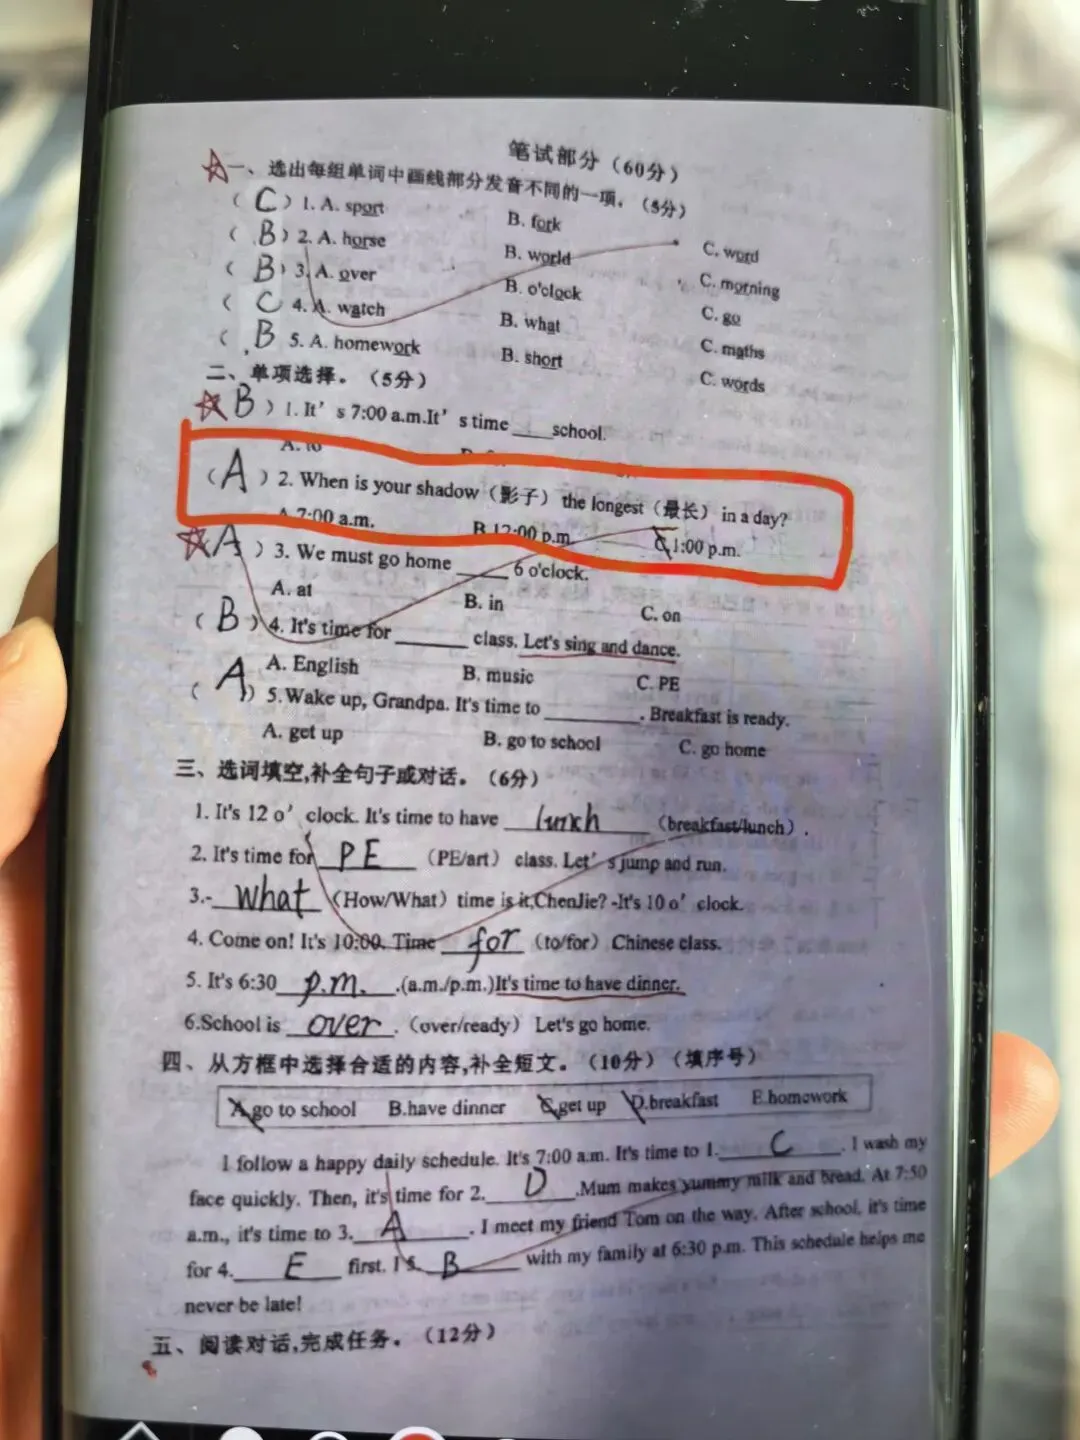 笔试部分（60分）
一、选出每组单词中画线部分发音不同的一项。（5分）
（ C ）1. A. sport B. fork C. word
（ B ）2. A. horse B. world C. morning
（ B ）3. A. over B. o'clock C. go
（ C 4. A. watch B. what C. maths
（ B 5. A. homework B. short C. words
二、单项选择。（5分）
B ）1. It's 7:00 a.m.It's time ____school.
A. to
（ A ）2. When is your shadow（影子）the longest（最长）in a day?
A.7:00 a.m. B.12:00 p.m. C.1:00 p.m.
A ）3. We must go home _____ 6 o'clock.
A. at B. in C. on
（ B ）4. It's time for _______ class. Let's sing and dance.
A. English B. music C. PE
（ A ）5.Wake up, Grandpa. It's time to _________. Breakfast is ready.
A. get up B. go to school C. go home
三、选词填空,补全句子或对话。（6分）
1. It's 12 o'clock. It's time to have lunch （breakfast/lunch）.
2. It's time for PE （PE/art）class. Let's jump and run.
3.- What （How/What）time is it,ChenJie? -It's 10 o'clock.
4. Come on! It's 10:00. Time for （to/for）Chinese class.
5. It's 6:30 p.m. .(a.m./p.m.)It's time to have dinner.
6.School is over .（over/ready）Let's go home.
四、从方框中选择合适的内容,补全短文。（10分）（填序号）
A.go to school B.have dinner C.get up D.breakfast E.homework
I follow a happy daily schedule. It's 7:00 a.m. It's time to 1. C . I wash my
face quickly. Then, it's time for 2. D .Mum makes yummy milk and bread. At 7:50
a.m., it's time to 3. A . I meet my friend Tom on the way. After school, it's time
for 4. E first. I 5. B with my family at 6:30 p.m. This schedule helps me
never be late!
五、阅读对话,完成任务。（12分）